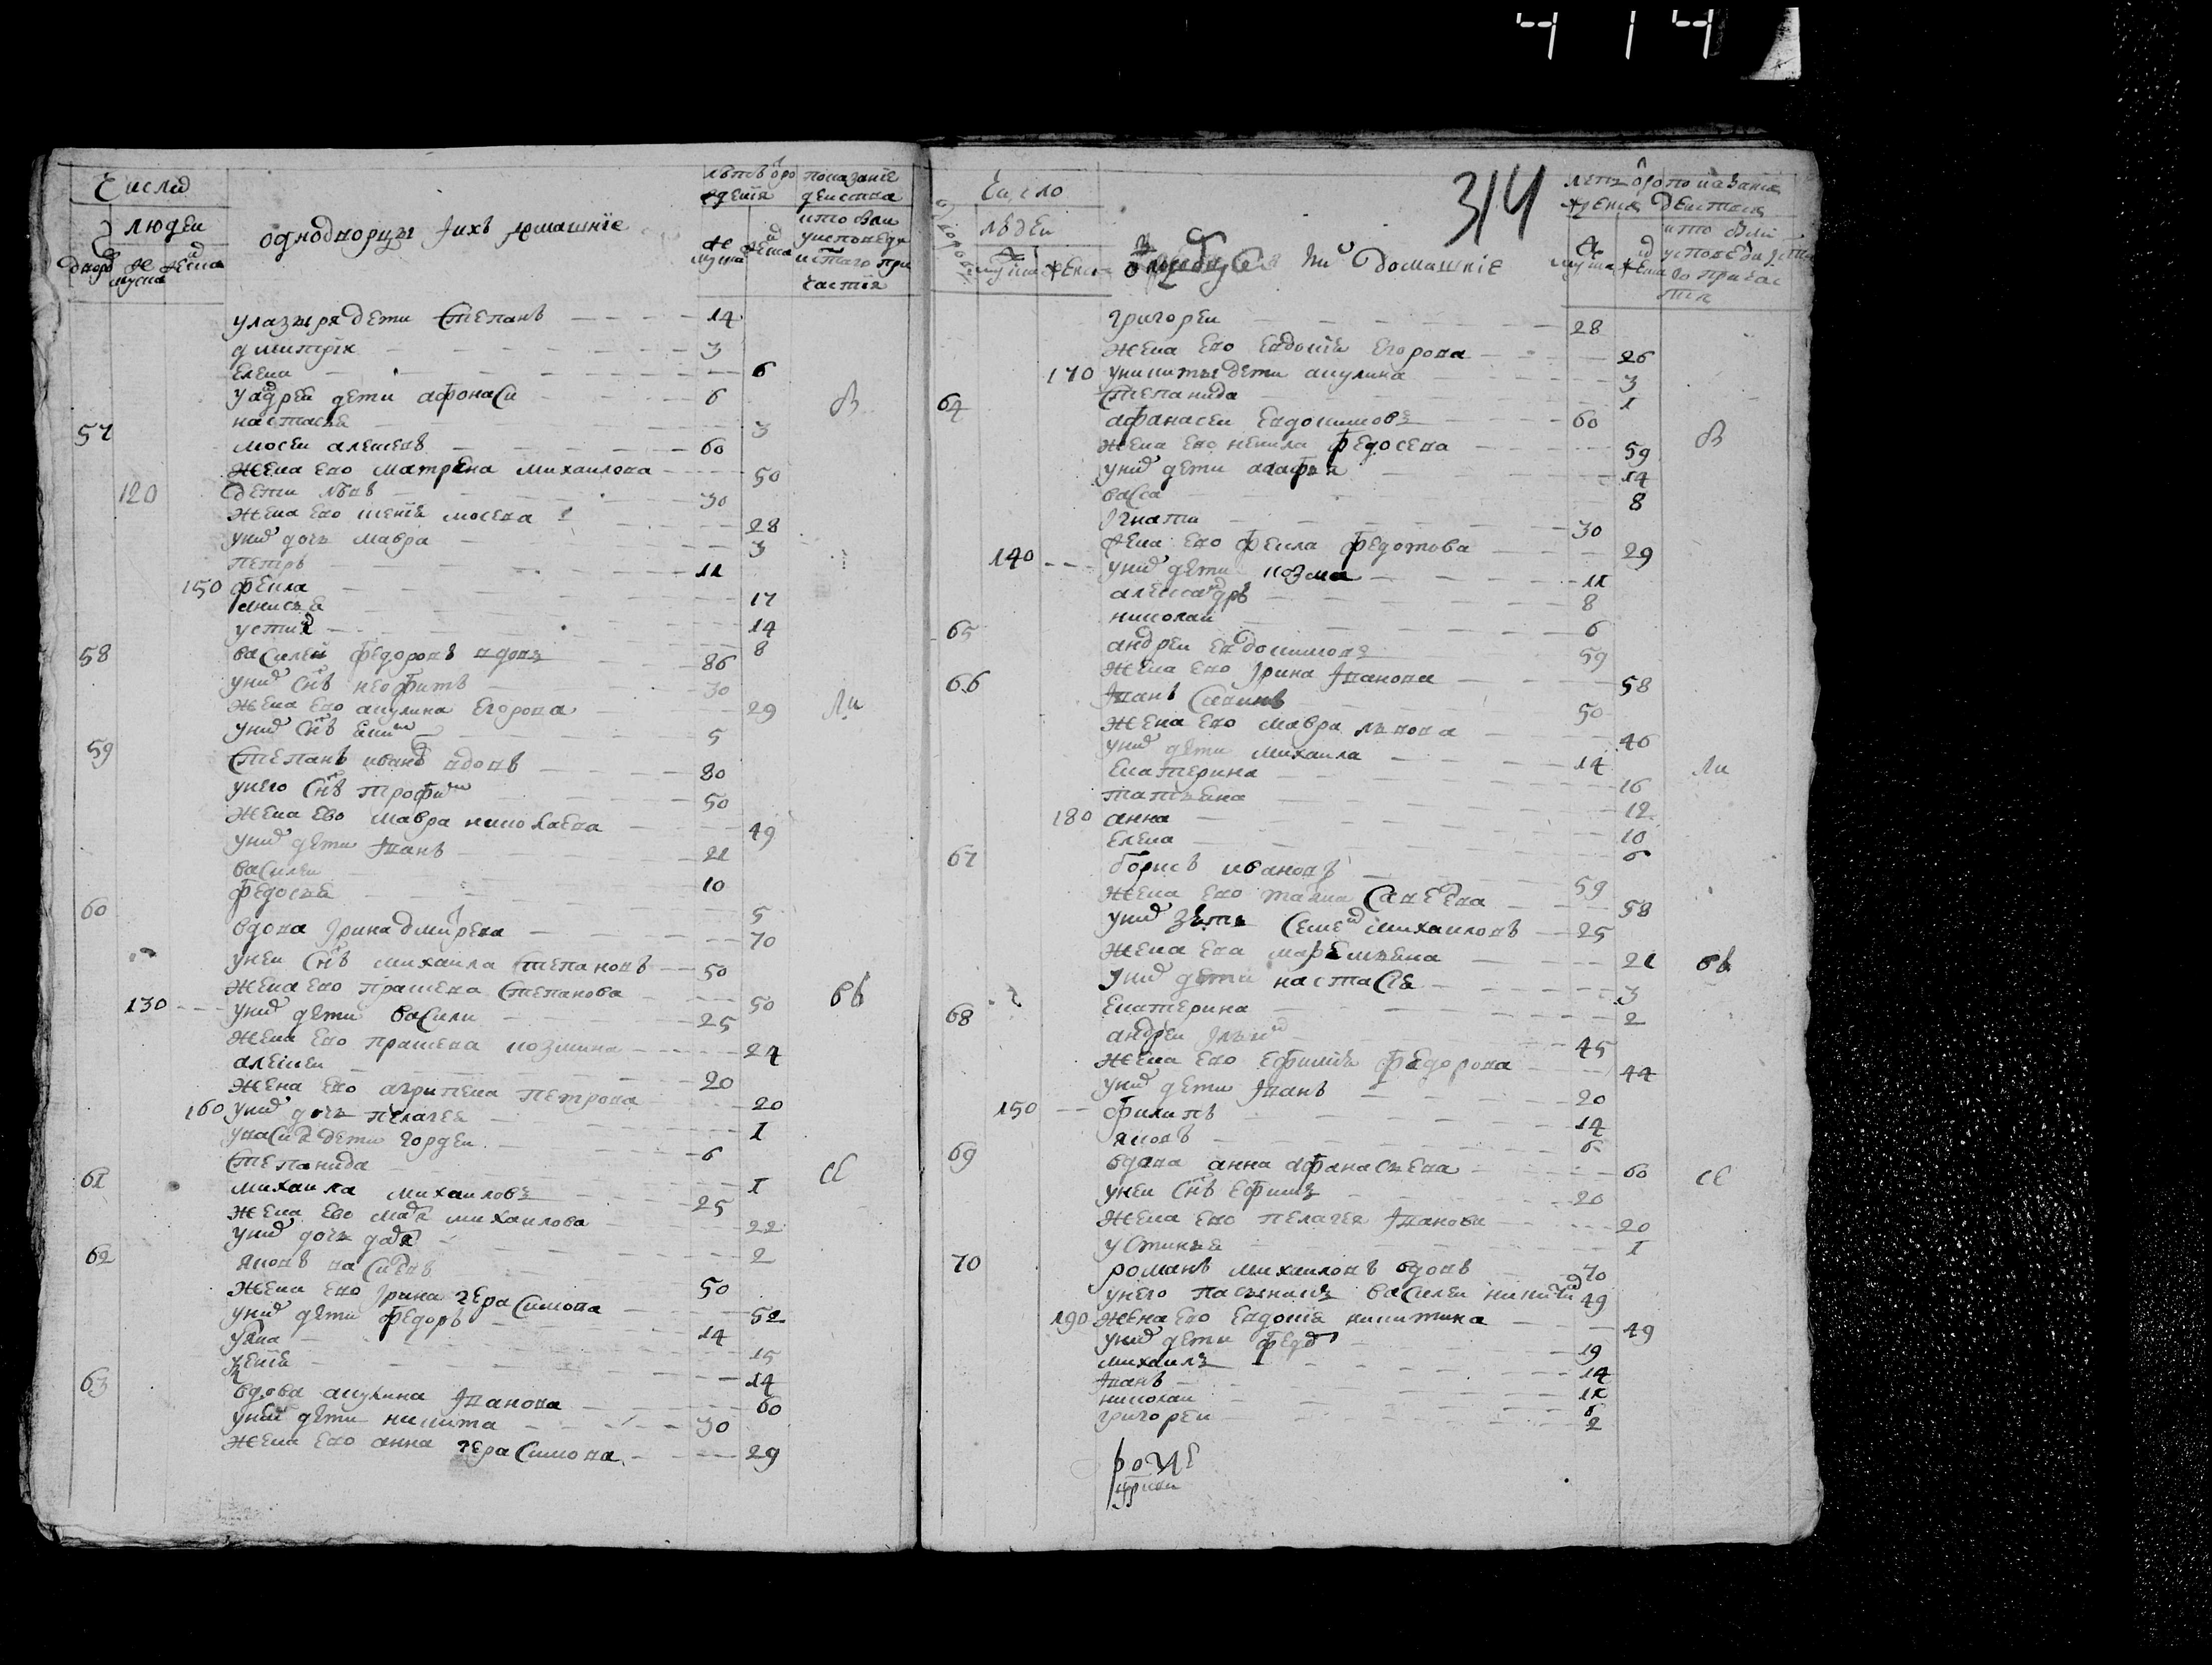 4 14
Число
людеи
дворо
муска
женска
однодворцы и ихъ домашние
лѣтъ отро
ждения
муска
женска
показание
действа
кто были
у исповеди
и с̃таго при
частия
у лазыря дети степанъ 14
дмитрiи 3
елена 6
у андрея дети афонаси 6
настасья 3
57 мосеи алексеевъ 60
жена ево матрена михаилова 50
120 дети лвъ 30
жена ево мосеева 28
у них дочь мавра 3
петръ 11
150 фекла 17
анисья 14
устин 8
58 василеи федоровъ вдовъ 86
у них снъ неофитъ 30
жена ево акулина егорова 29
у них снъ еким 5
59 степанъ иванов вдовъ 80
у него снъ трофим 50
жена ево мавра николаева 49
у них дети иванъ 21
василеи 10
федосья 5
60 вдова ирина дмитрева 70
у неи снъ михаила степановъ 50
жена ево прасковя степанова 50
130 у них дети васили 25
жена ево прасковя козмина 24
алексеи 20
жена ево агрипена петрова 20
160 у них дочь пелагея 1
у васил дети гордеи 6
степанида 1
61 михаила михаиловъ 25
жена ево михаилова 22
у них дочь дар 2
62 яковъ васильевъ 50
жена ево ирина герасимова 52
у них дети федоръ 14
уляна 15
14
63 вдова акулина иванова 60
у неи дети никита 30
жена ево анна герасимова 29
314
Число
людеи
дворов
муска
женска
домашние
лета отро
ждения
муска
женска
показания
действа
кто были
у исповеди
причас
тия
григореи 28
жена ево евдокия егорова 26
170 у никиты дети акулина 3
степанида 1
64 афанасеи евдокимовъ 60
жена ево ненила федосева 59
у них дети агафя 14
васса 8
игнати 30
жена ево фекла федотова 29
140 у них дети козма 11
александръ 8
николаи 6
65 андреи евдокимовъ 59
жена ево ирина иванова 58
66 иванъ савинъ 50
жена ево мавра лвова 46
у них дети михаила 14
екатерина 16
татьяна 12
180 анна 10
елена 6
67 борисъ ивановъ 59
жена ево савельева 58
у них зять семен михаиловъ 25
жена ева 21
у них дети настася 3
екатерина 2
68 андреи ильин 45
жена ево ефимия федорова 44
у них дети иванъ 20
150 филипъ 14
яковъ 6
69 вдова анна афанасьева 60
у неи снъ ефимъ 20
жена ево пелагея иванова 20
устинья 1
70 романъ михаиловъ вдовъ 70
у него пасынакъ василеи никитин 49
190 жена ево евдокия никитина 49
у них дети федор 19
михаилъ 14
иванъ 11
николаи 6
григореи 2